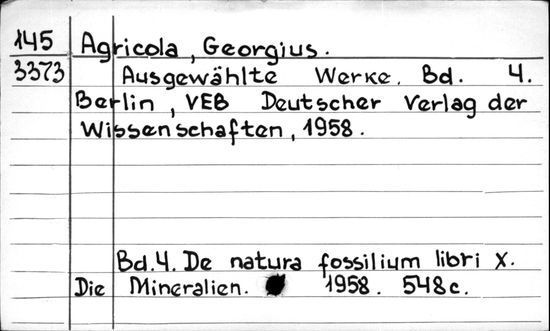 145 Agricola, Georgius.
3373 Ausgewählte Werke. Bd. 4.
Berlin, VEB Deutscher Verlag der
Wissenschaften, 1958.
Bd.4. De natura fossilium libri X.
Die Mineralien. 1958. 548c.